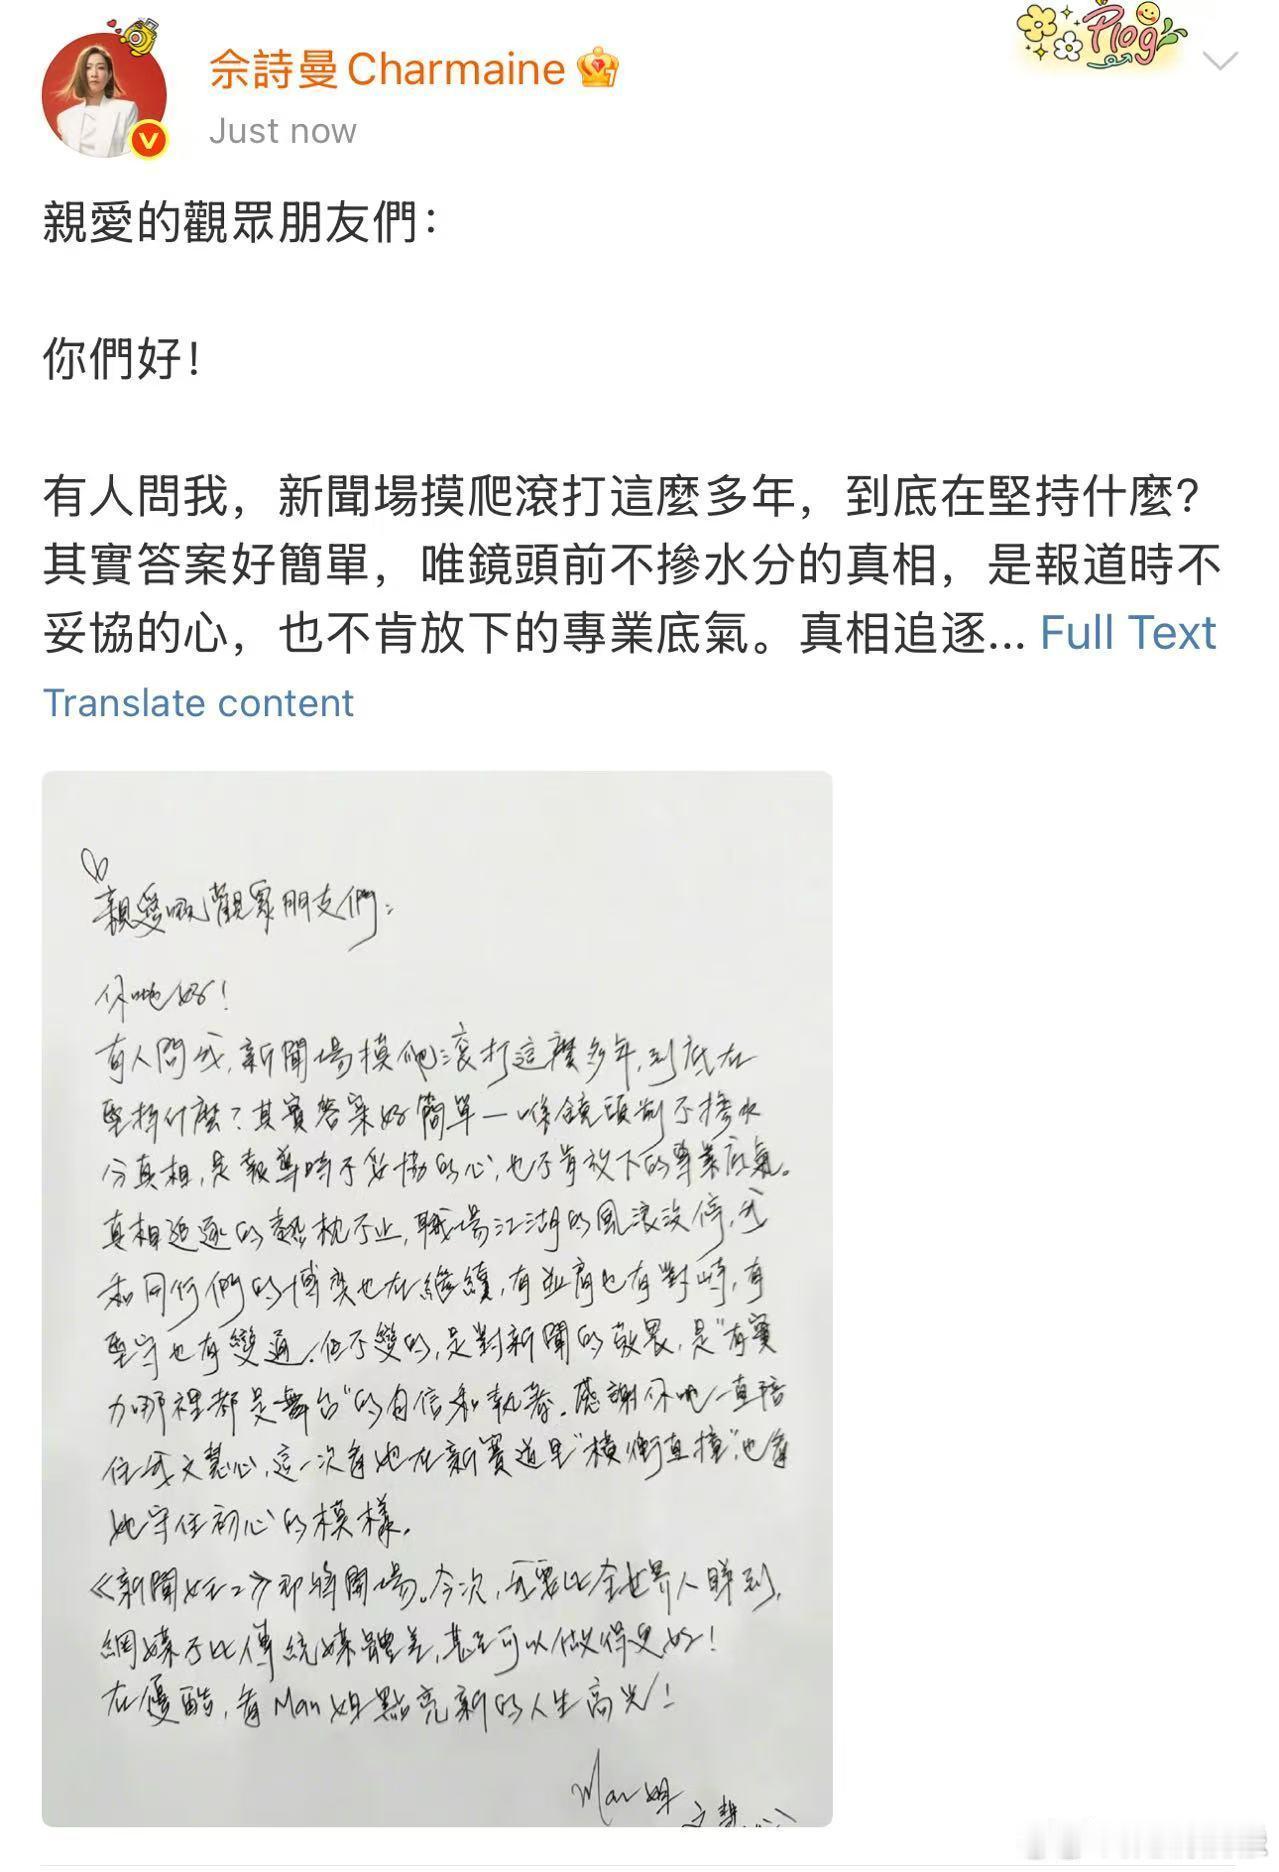 佘詩曼Charmaine
Plog
Just now
親愛的觀眾朋友們：
你們好！
有人問我，新聞場摸爬滾打這麼多年，到底在堅持什麼？
其實答案好簡單，唯鏡頭前不摻水分的真相，是報道時不
妥協的心，也不肯放下的專業底氣。真相追逐... Full Text
Translate content
親愛嘅觀眾朋友們：
你哋好！
有人問我，新聞場摸爬滾打這麼多年，到底在
堅持什麼？其實答案好簡單一喺鏡頭前不摻水
分真相，是報導時不妥協的心，也不肯放下的專業底氣。
真相追逐的熱枕不止，職場江湖的風浪沒停，我
和同行們的博奕也在繼續，有並肩也有對峙，有
堅守也有變通，但不變的，是對新聞的敬畏，是"有實
力哪裡都是舞台"的自信和執著。感謝你哋一直陪
住我文慧心，這一次看她在新賽道里"橫衝直撞"，也看
她守住初心的模樣。
《新聞女王2》即將開場。今次，我要比全世界人睇到，
網媒不比傳統媒體差，甚至可以做得更好！
在優酷，看Man姐點亮新的人生高光！
Man姐
文慧心